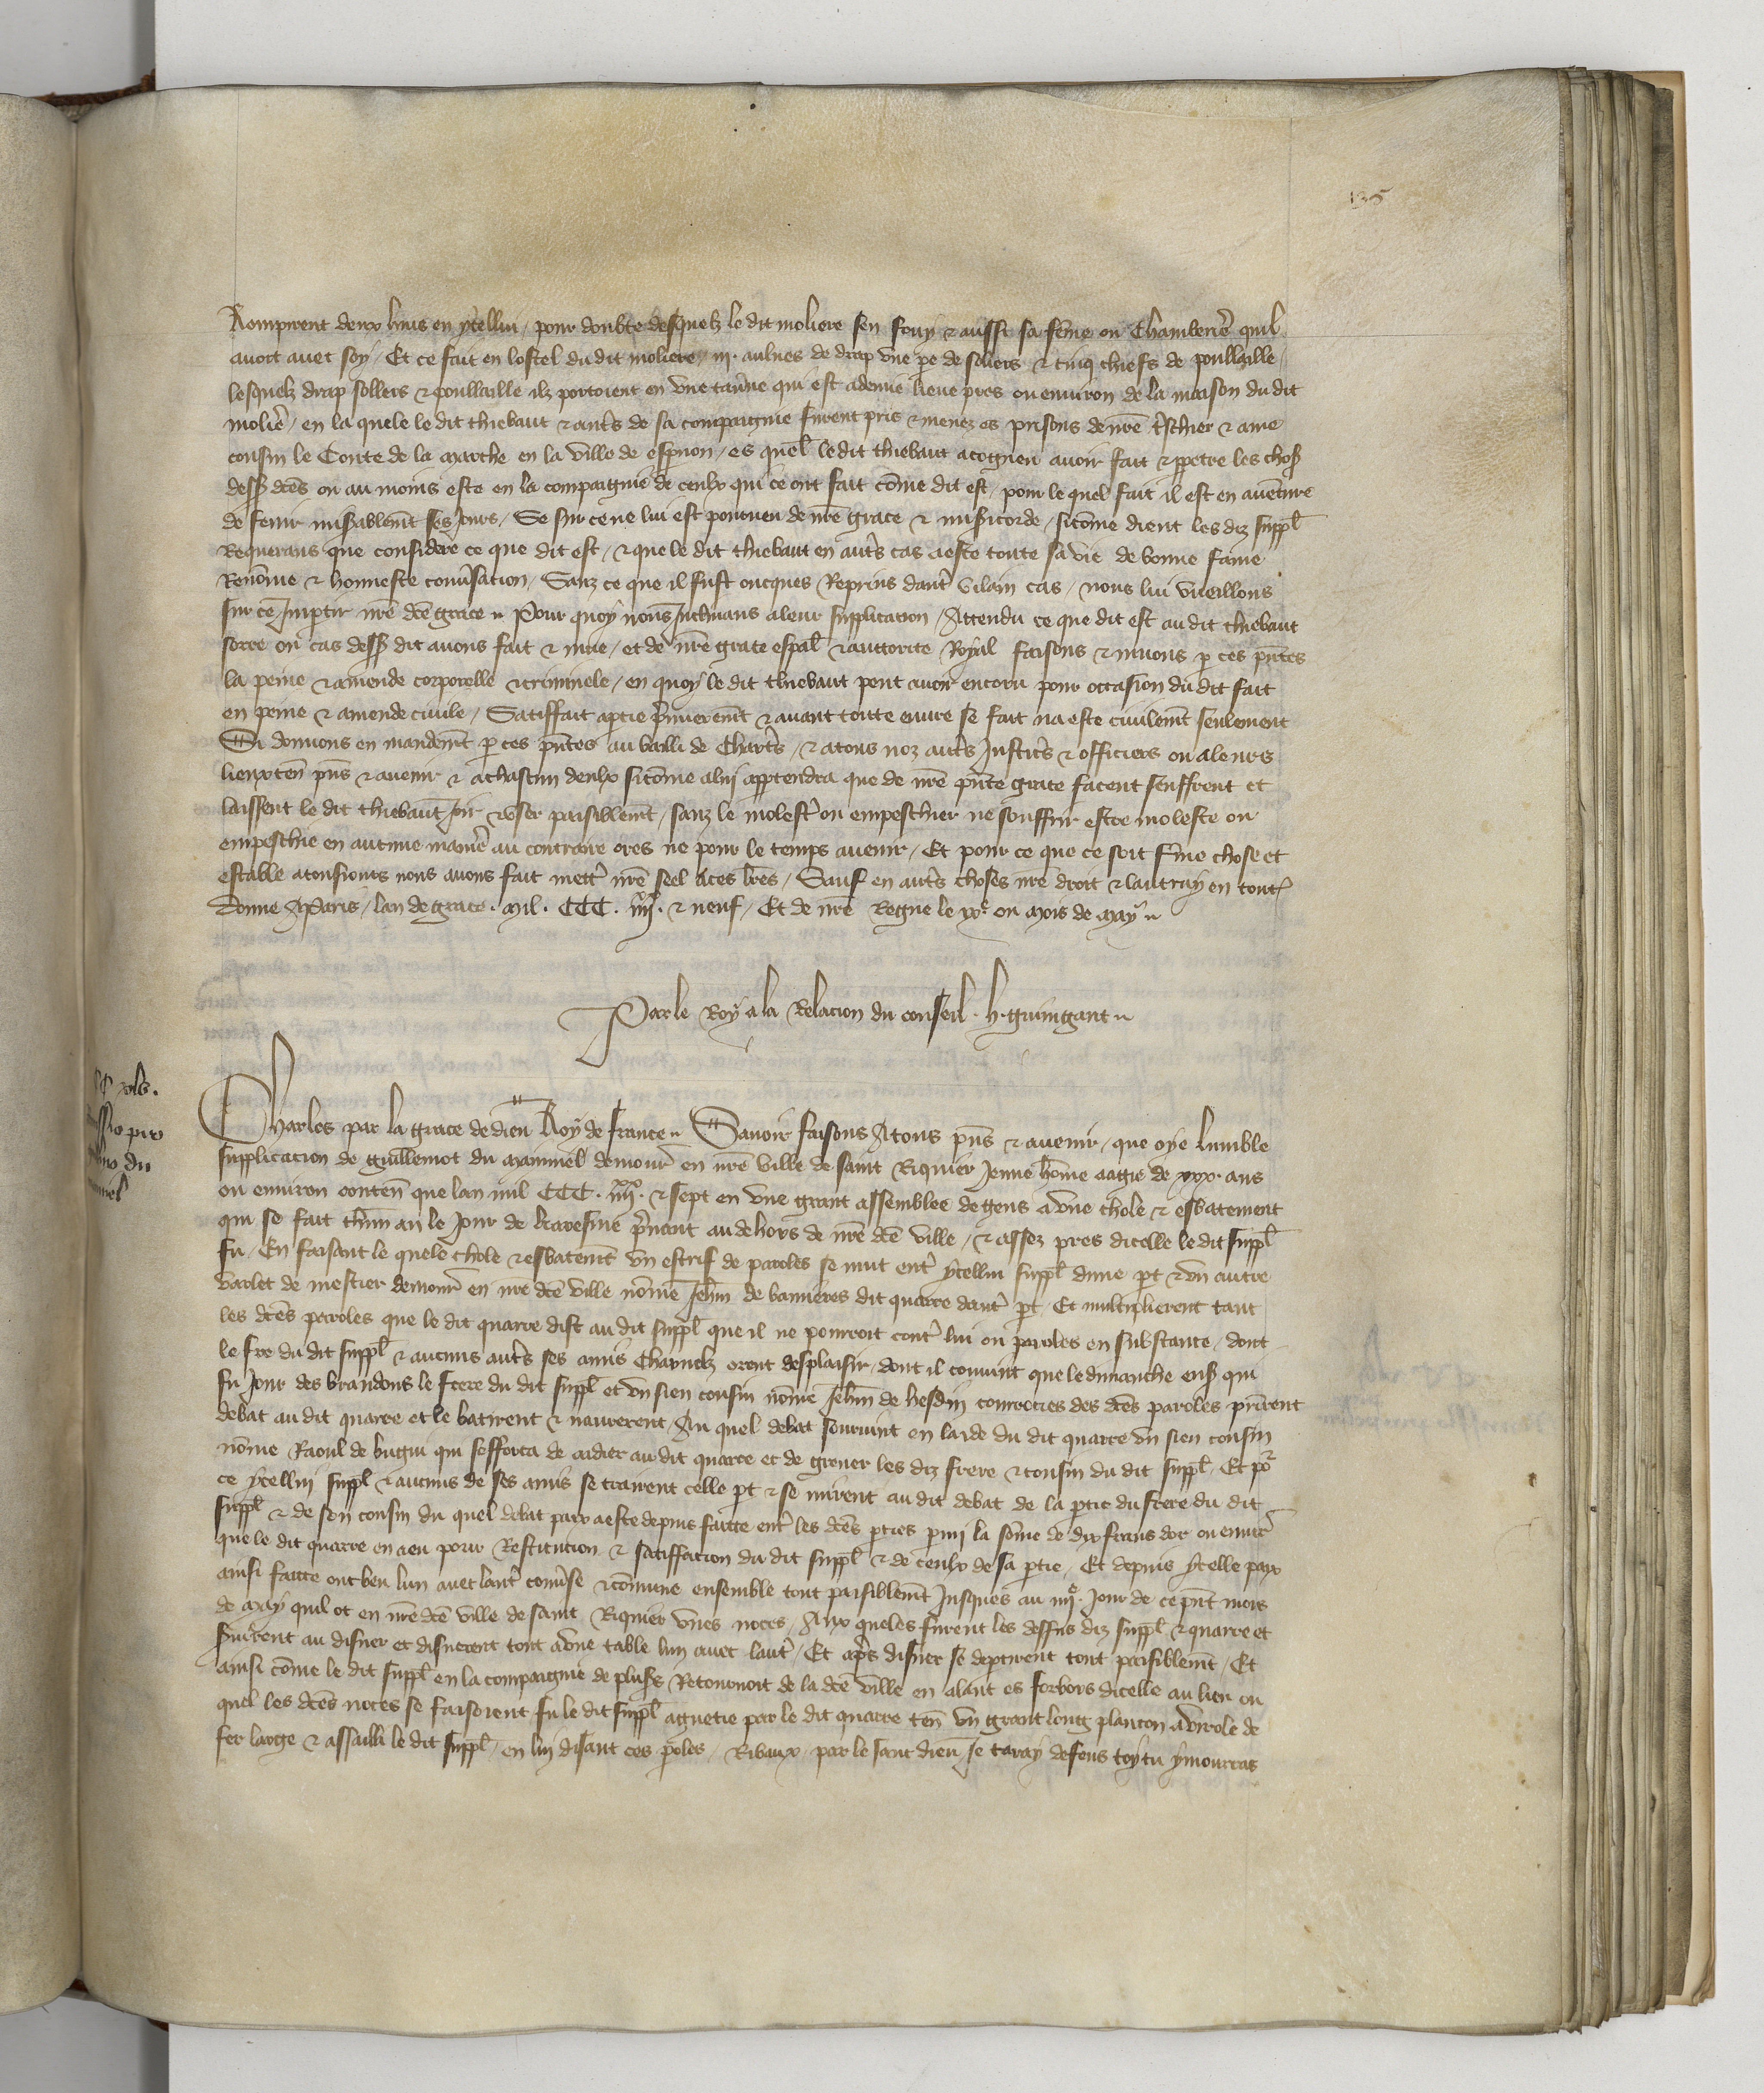 135
Rompirent deux huis en ycellui / pour doubte desquelz le dit moliere sen fouy & aussi sa fem̃e ou Chamberier̃e quil
avoit avec soy / Et ce fait en lostel du dit moliere / iii. aulnes de drap vne pe de sollers & cinq chiefs de poullaille /
lesquelz drap sollers & poullaille ilz portoient en vne tav̾ne qui est a demie lieue pres ou environ de la maison du dit
molier̾ / en la quele le dit thiebaut & aut̾s de sa compaignie furent pris & menez es prisons de nr̃e t̾schier & ame
cousin le Conte de la marche en la ville de esp̾non / es quel̃ le dit thiebaut a cogneu avoir fait & p̱petre les chos̾
dess̾ dc̃es ou au moins este en la compaignie de ceulx qui ce ont fait cõme dit est / pour le quel fait il est en avent̾ure
de fenir mis̾ablem̃t ses Jours / Se sur ce ne lui est pourveu de nr̃e grace & mis̾icorde / sicõme dient les diz suppl̃
Requerans que considere ce que dit est / & que le dit thiebaut en aut̾s cas a este toute sa vie de bonne fame
Renõmee & honneste conv̾sacion / Sanz ce que il fust oncques Reprins daut̾ vilain cas / nous lui vueillons
sur ce Imp̱tir nr̃e dc̃e grace ~ Pour quoy nous Inclinans a leur supplicacion / Attendu ce que dit est au dit thiebaut
ou cas dess̾ dit avons fait & mue / et de nr̃e grace esp̃al & auctorite Royal faisons & muons p̱ ces pñtes
la peine & amende corporelle & criminele / en quoy le dit thiebaut peut avoir encoru pour occasion du dit fait
en peine & amende civile / Satiffait a p̱tie p̾mierem̃t & avant toute euvre se fait na este civilem̃t seulement
Si donnons en mandem̃t p̱ ces pñtes au bailli de Chart̾s / & a tous noz aut̾s Justic̾s & officiers ou a leurs
lieuxteñ pñs & avenir & a chascun deulx sicõme a lui app̱tendra que de nr̃e pñte grace facent seuffrent et
laissent le dit thiebaut Joir & vser paisiblem̃t / sanz le molest̾ ou empeschier ne souffrir estre moleste ou
empeschie en aucune manier̾e au contraire ores ne pour le temps avenir / Et pour ce que ce soit ferme chose et
estable a tousiours nous avons fait mett̾ nr̃e seel a ces lr̃es / Sauf en aut̾s choses nr̃e droit & lautruy en tout̾
Donne A Paris / lan de grace . Mil . CCC . iiiixx. & neuf / Et de nr̃e Regne le ixe ou mois de May ~
Par le Roy a la Relacion du conseil . h . guingant ~
Charles par la grace de dieu Roy de france ~ Savoir faisons A tous pñs & avenir / que oye lumble
supplicacion de guillemot du maisniel demour̾ en nr̃e ville de saint Riquier Jeune hõme aagie de xxx. ans
ou environ conteñ que lan mil CCC. iiiixx. & sept en vne grant assemblee de gens a vne chole & esbatement
qui se fait chũn an le Jour de karesme p̾nant au dehors de nr̃e dc̃e ville / & assez pres dicelle le dit suppl̃
fu / En faisant le quele chole & esbatem̃t vn estrif de paroles se mut ent̾ ycellui suppl̃ dune p̱t & vn autre
varlet de mestier demour̾ en nr̃e dc̃e ville nõme Jehan de banieres dit quarre daut̾ p̱t / Et multiplierent tant
les dc̃es paroles que le dit quarre dist au dit suppl̃ que il ne pourroit cont̾ lui ou paroles en substance / dont
le fr̃e du dit suppl̃ & aucuns aut̾s ses amis Charnelz orent desplaisir / dont il convint que le dimanche ens̾ qui
fu Jour des brandons le frere du dit suppl̃ et vn sien cousin nõme Jehan de hesdin courrocies des dc̃es paroles prirent
debat au dit quarre et le batirent & navrerent / Au quel debat sourvint en laide du dit quarre vn sien cousin
nõme Raoul de bugni qui sefforca de aidier au dit quarre et de grever les diz frere & cousin du dit suppl̃ / Et po̾
ce ycellui suppl̃ & aucuns de ses amis se trairent celle p̱t & se mirent au dit debat de la p̱tie du frere du dit
suppl̃ & de son cousin du quel debat paix a este depuis faicte ent̾ les dc̃es p̱ties p̱mi la sõme de dix frans dor ou envir̾
que le dit quarre en a eu pour Restitucion & satiffacion du dit suppl̃ & de ceulx de sa p̱tie / Et depuis ycelle paix
ainsi faicte ont beu lun avec laut̾ conv̾se & cõmune ensemble tout paisiblem̃t Jusques au iiiie. Jour de ce pñt mois
de may quil ot en nr̃e dc̃e ville de saint Riquier vnes noces / Aux queles furent les dessus diz suppl̃ & quarre et
au disner et disnerent tout a vne table lun avec laut̾ / Et ap̾s disner se dep̱tirent tout paisiblem̃t / Et
ainsi cõme le dit suppl̃ en la compaignie de plus̾s Retournoit de la dc̃e ville en alant es forbors dicelle au lieu ou
quel les dc̃es noces se faisoient fu le dit suppl̃ aguetie par le dit quarre teñ vn grant long plancon a virole de
fer large & assailli le dit suppl̃ / en lui disant ces p̱oles / Ribaux par le sanc dieu Je taray defens toy tu y mourras